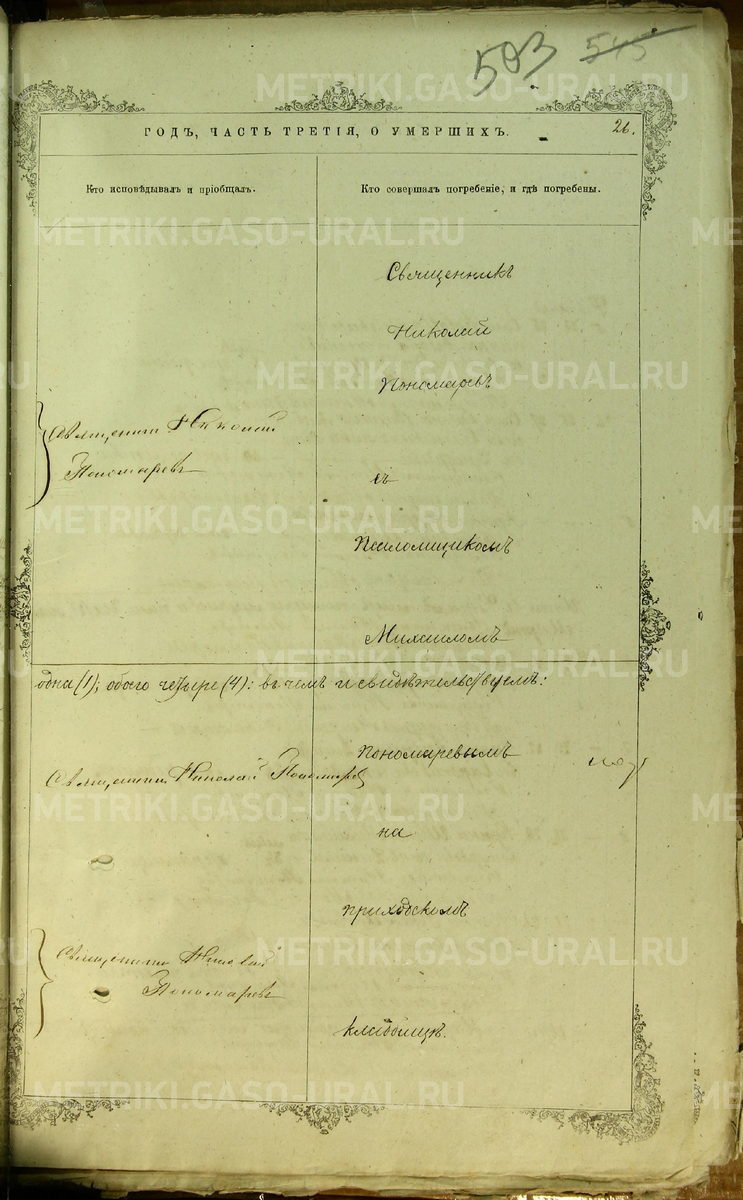 503 545
ГОДЪ, ЧАСТЬ ТРЕТІЯ, О УМЕРШИХЪ.
26.
Кто исповѣдывалъ и пріобщалъ.
Кто совершалъ погребеніе, и гдѣ погребены.
METRIKI.GASO-URAL.RU
Священникъ
Николай
Пономаревъ
Священникъ Николай
Пономаревъ
съ
Псаломщикомъ
Михаиломъ
одна (1); обоего четыре (4): въ чемъ и свидѣтельствуемъ:
Пономаревымъ
Священникъ Николай Пономаревъ
на
приходскомъ
Священникъ Николай
Пономаревъ
кладбищѣ.